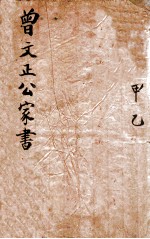 曾文正公家書
甲乙